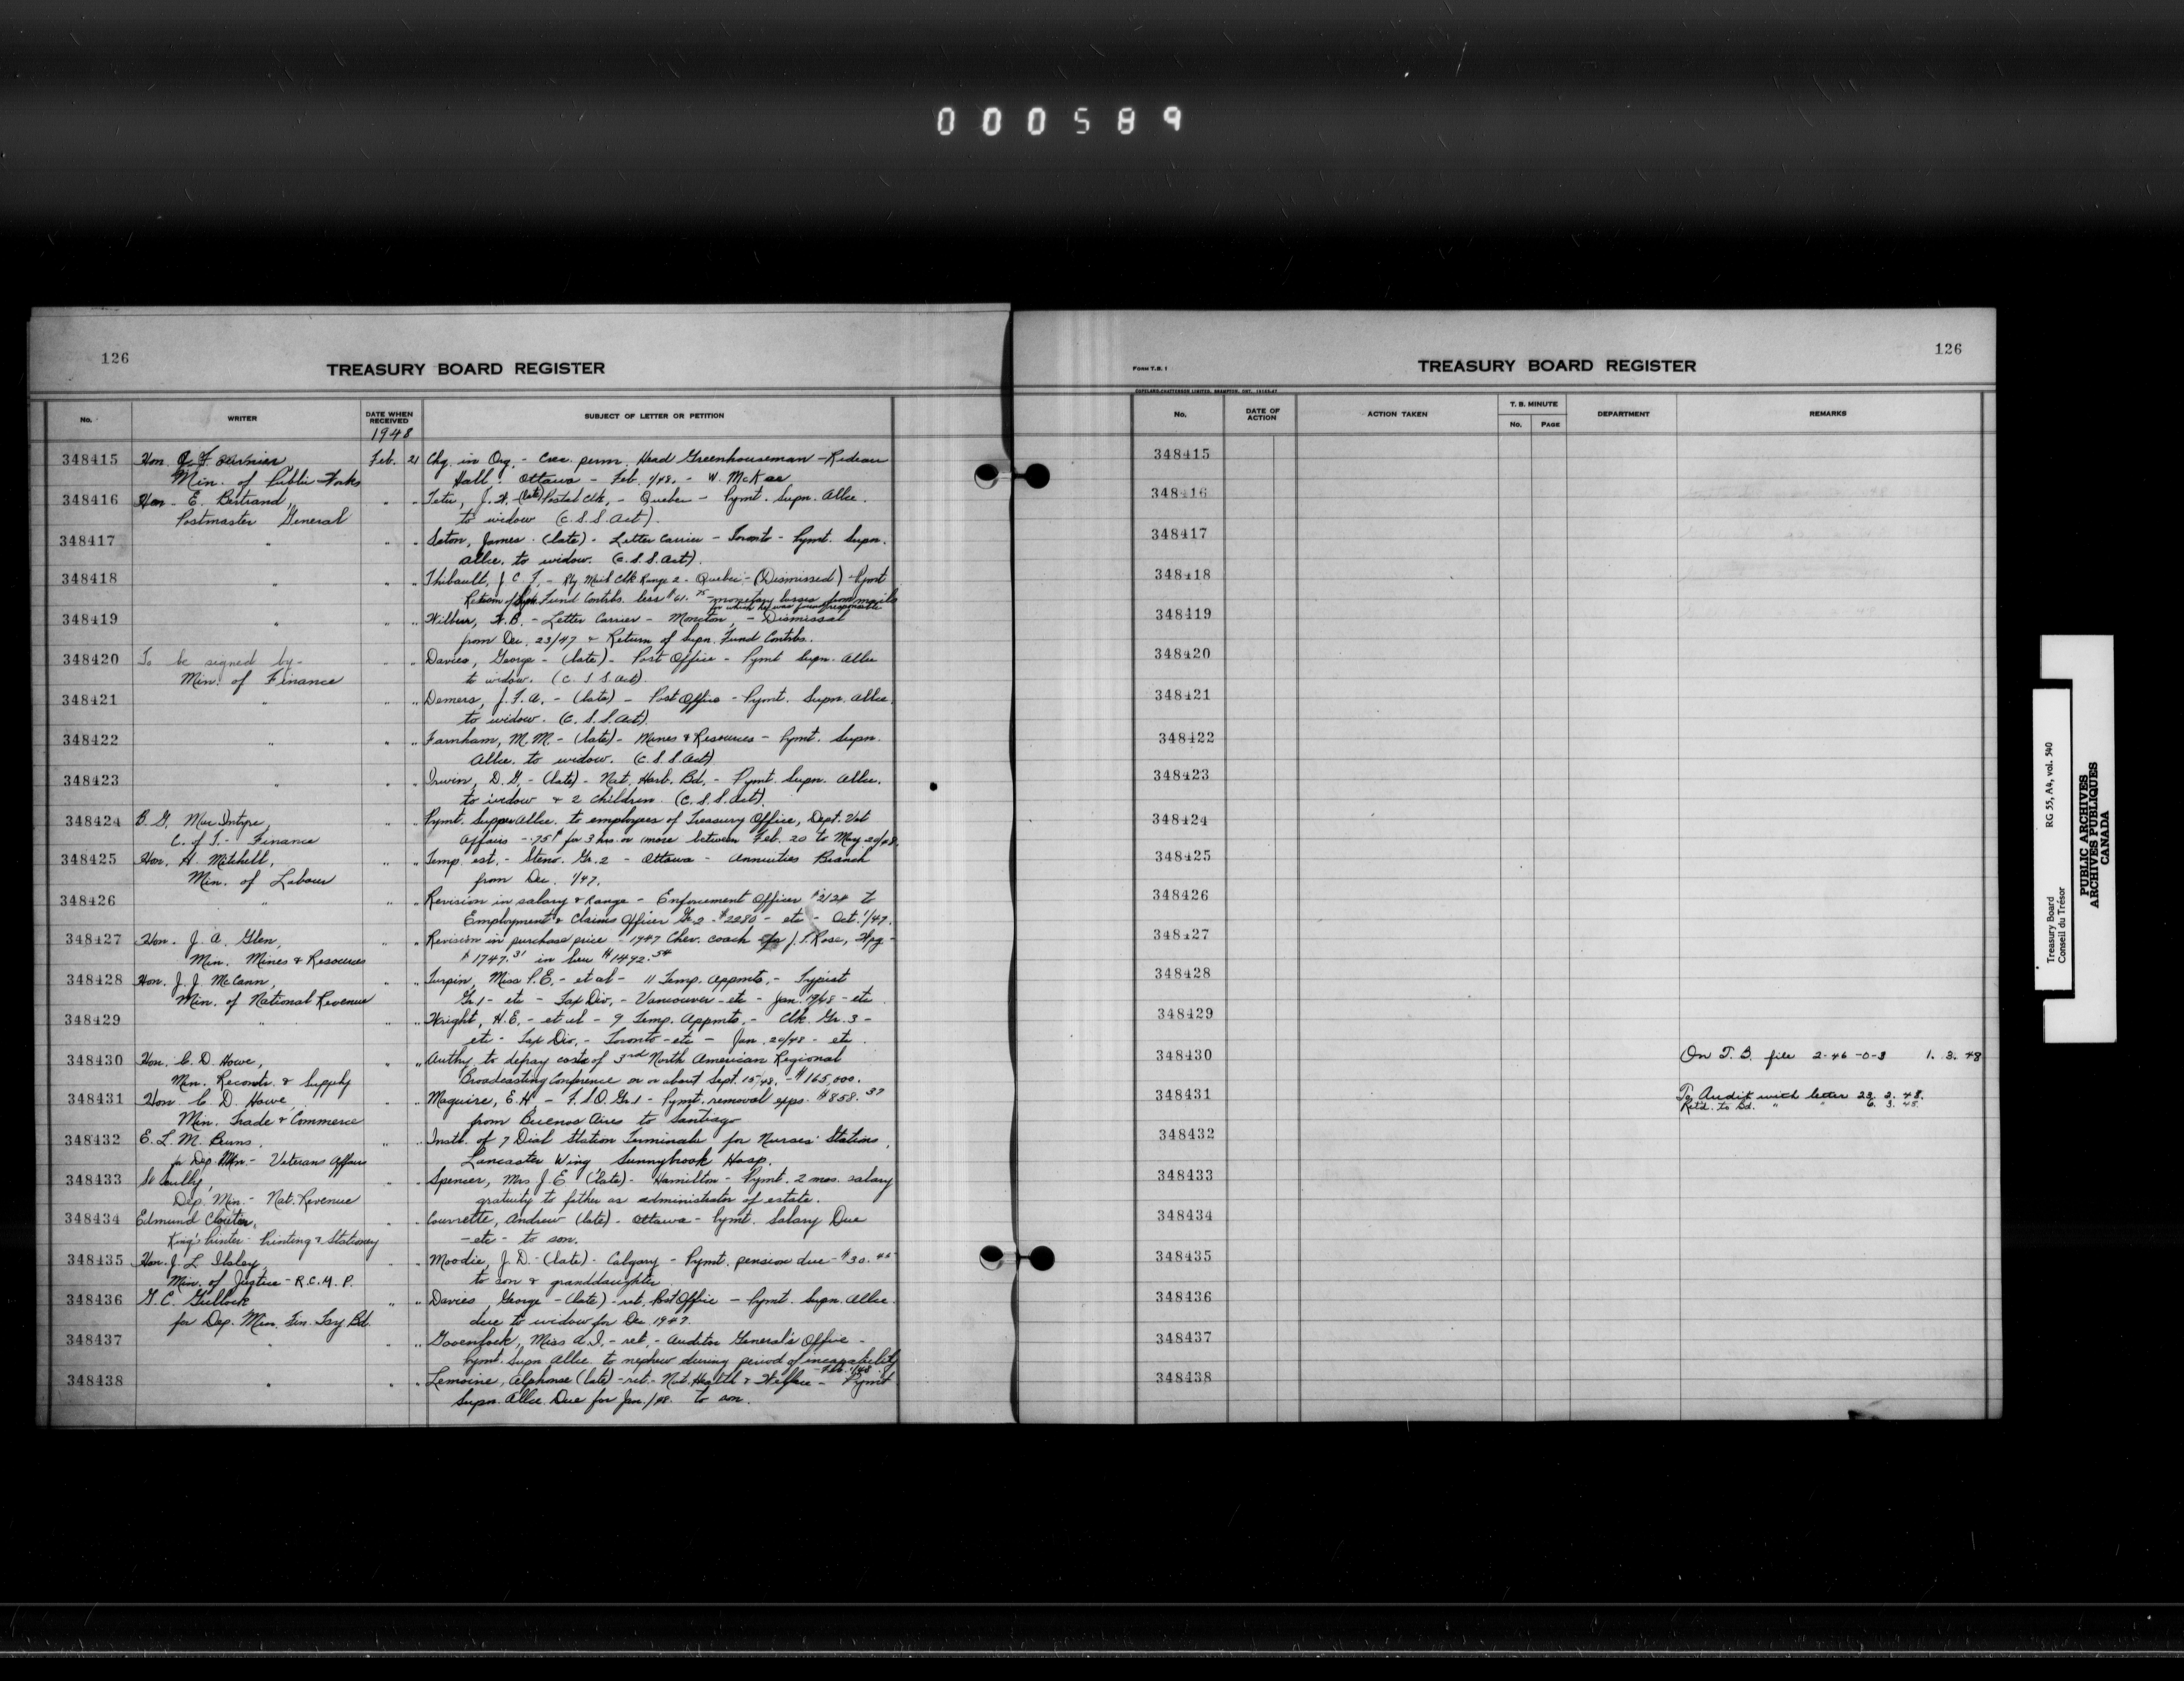 000589
126
TREASURY BOARD REGISTER
No.
WRITER
DATE WHEN RECEIVED
SUBJECT OF LETTER OR PETITION
1948
348415 Hon. Fournier Feb. 21 Chg. in Org. - Crec. perm. Head Greenhouseman - Rideau
Min. of Public Works Hall, Ottawa - Feb. 1/48. - W. McKae
348416 Hon. E. Bertrand, " " Tetu, J. H. (late) Postal Clk, - Quebec - Pymt. Supn. Allce.
Postmaster General to widow (C.S.S. Act).
348417 " " " Seton, James (late) - Letter Carrier - Toronto - Pymt. Supn.
Allce. to widow. (C.S.S. Act).
348418 " " " Thibault, J. C. T. - Rly. Mail Clk Range 2 - Quebec - (Dismissed) - Pymt
Return of Supn. Fund Contribs. less $61.75 - monetary losses from mails
for which he was found responsible
348419 " " " Wilbur, H.B. - Letter Carrier - Moncton, - Dismissal
from Dec. 23/47 & Return of Supn. Fund Contribs.
348420 To be signed by - " " Davies, George - (late) - Post Office - Pymt Supn. Allce
Min. of Finance to widow. (C.S.S. Act).
348421 " " " Demers, J.F.A. - (late) - Post Office - Pymt. Supn. Allce.
to widow. (C.S.S. Act).
348422 " " " Farnham, M.M. - (late) - Mines & Resources - Pymt. Supn.
Allce. to widow. (C.S.S. Act)
348423 " " " Irwin, D.G. - (late) - Nat. Harb. Bd. - Pymt. Supn. Allce.
to widow & 2 children. (C.S.S. Act).
348424 B. G. MacIntyre, " Pymt. Supper Allce. to employees of Treasury Office, Dept. Vet
C. of T. - Finance Affairs - .75¢ for 3 hrs. or more between Feb. 20 to May 20/48.
348425 Hon. H. Mitchell, " " Temp. est. - Steno. Gr. 2 - Ottawa - Annuities Branch
Min. of Labour from Dec. 1/47.
348426 " " " Revision in salary & Range - Enforcement Officer $2124 to
Employment & Claims Officer Gr. 2 - $2280 - etc - Oct. 1/47.
348427 Hon. J. A. Glen, " " Revision in purchase price - 1947 Chev. coach J. S. Rose, Wpg -
Min. Mines & Resources $1747.31 in lieu $1492.54
348428 Hon. J. J. McCann, " " Turpin, Miss P.E. - et al - 11 Temp. Appmts. - Typist
Min. of National Revenue Gr 1 - etc - Tax Div. - Vancouver - etc - Jan. 19/48 - etc
348429 " " " Wright, H.E. - et al - 9 Temp. Appmts. - Clk. Gr. 3 -
etc - Tax Div. - Toronto - etc - Jan. 20/48 - etc
348430 Hon. C. D. Howe, " " Authy. to defray costs of 3rd North American Regional
Min. Reconstr. & Supply Broadcasting Conference on or about Sept. 15/48. - $165,000.
348431 Hon. C. D. Howe " " Maguire, E.H. - F.S.O. Gr. 1 - Pymt. removal exps. $858.37
Min. Trade & Commerce from Buenos Aires to Santiago
348432 E. L. M. Burns, " " Instl. of 7 Dial Station Terminals for Nurses' Stations,
for Dep. Min. - Veterans Affairs Lancaster Wing, Sunnybrook Hosp.
348433 Scully, " " Spencer, Mrs. J. E. (late) - Hamilton - Pymt. 2 mos. salary
Dep. Min. - Nat. Revenue gratuity to father as administrator of estate.
348434 Edmund Cloutier, " " Courrette, Andrew (late) - Ottawa - Pymt. Salary Due
King's Printer Printing & Stationery - etc - to son.
348435 Hon. J. L. Ilsley, " " Moodie, J. D. - (late) - Calgary - Pymt. pension due - $30.45
Min. of Justice - R.C.M.P. to son & granddaughter
348436 G. C. Gullock " " Davies, George - (late) - ret. Post Office - Pymt. Supn. Allce.
for Dep. Min. Fin. Tsy Bd. due to widow for Dec. 1947.
348437 " " " Govenlock, Miss A.I. - ret. - Auditor General's Office -
Pymt. Supn. Allce. to nephew during period of incapability
- Feb. 1/48
348438 " " " Lemoine, Alphonse (late) - ret. - Nat. Health & Welfare - Pymt
Supn. Allce. Due for Jan./48. to son.
FORM T.B. 1
TREASURY BOARD REGISTER
126
COPELAND-CHATTERSON LIMITED, BRAMPTON, ONT.
No.
DATE OF ACTION
ACTION TAKEN
T. B. MINUTE
No.
PAGE
DEPARTMENT
REMARKS
348415
348416
348417
348418
348419
348420
348421
348422
348423
348424
348425
348426
348427
348428
348429
348430 On T.B. file 2-46-0-3 1. 3. 48
348431 To Audit with letter 23. 2. 48.
Retd. to Bd. " " 6. 3. 48.
348432
348433
348434
348435
348436
348437
348438
Treasury Board
Conseil du Trésor
RG 55, A4, vol. 540
PUBLIC ARCHIVES
ARCHIVES PUBLIQUES
CANADA